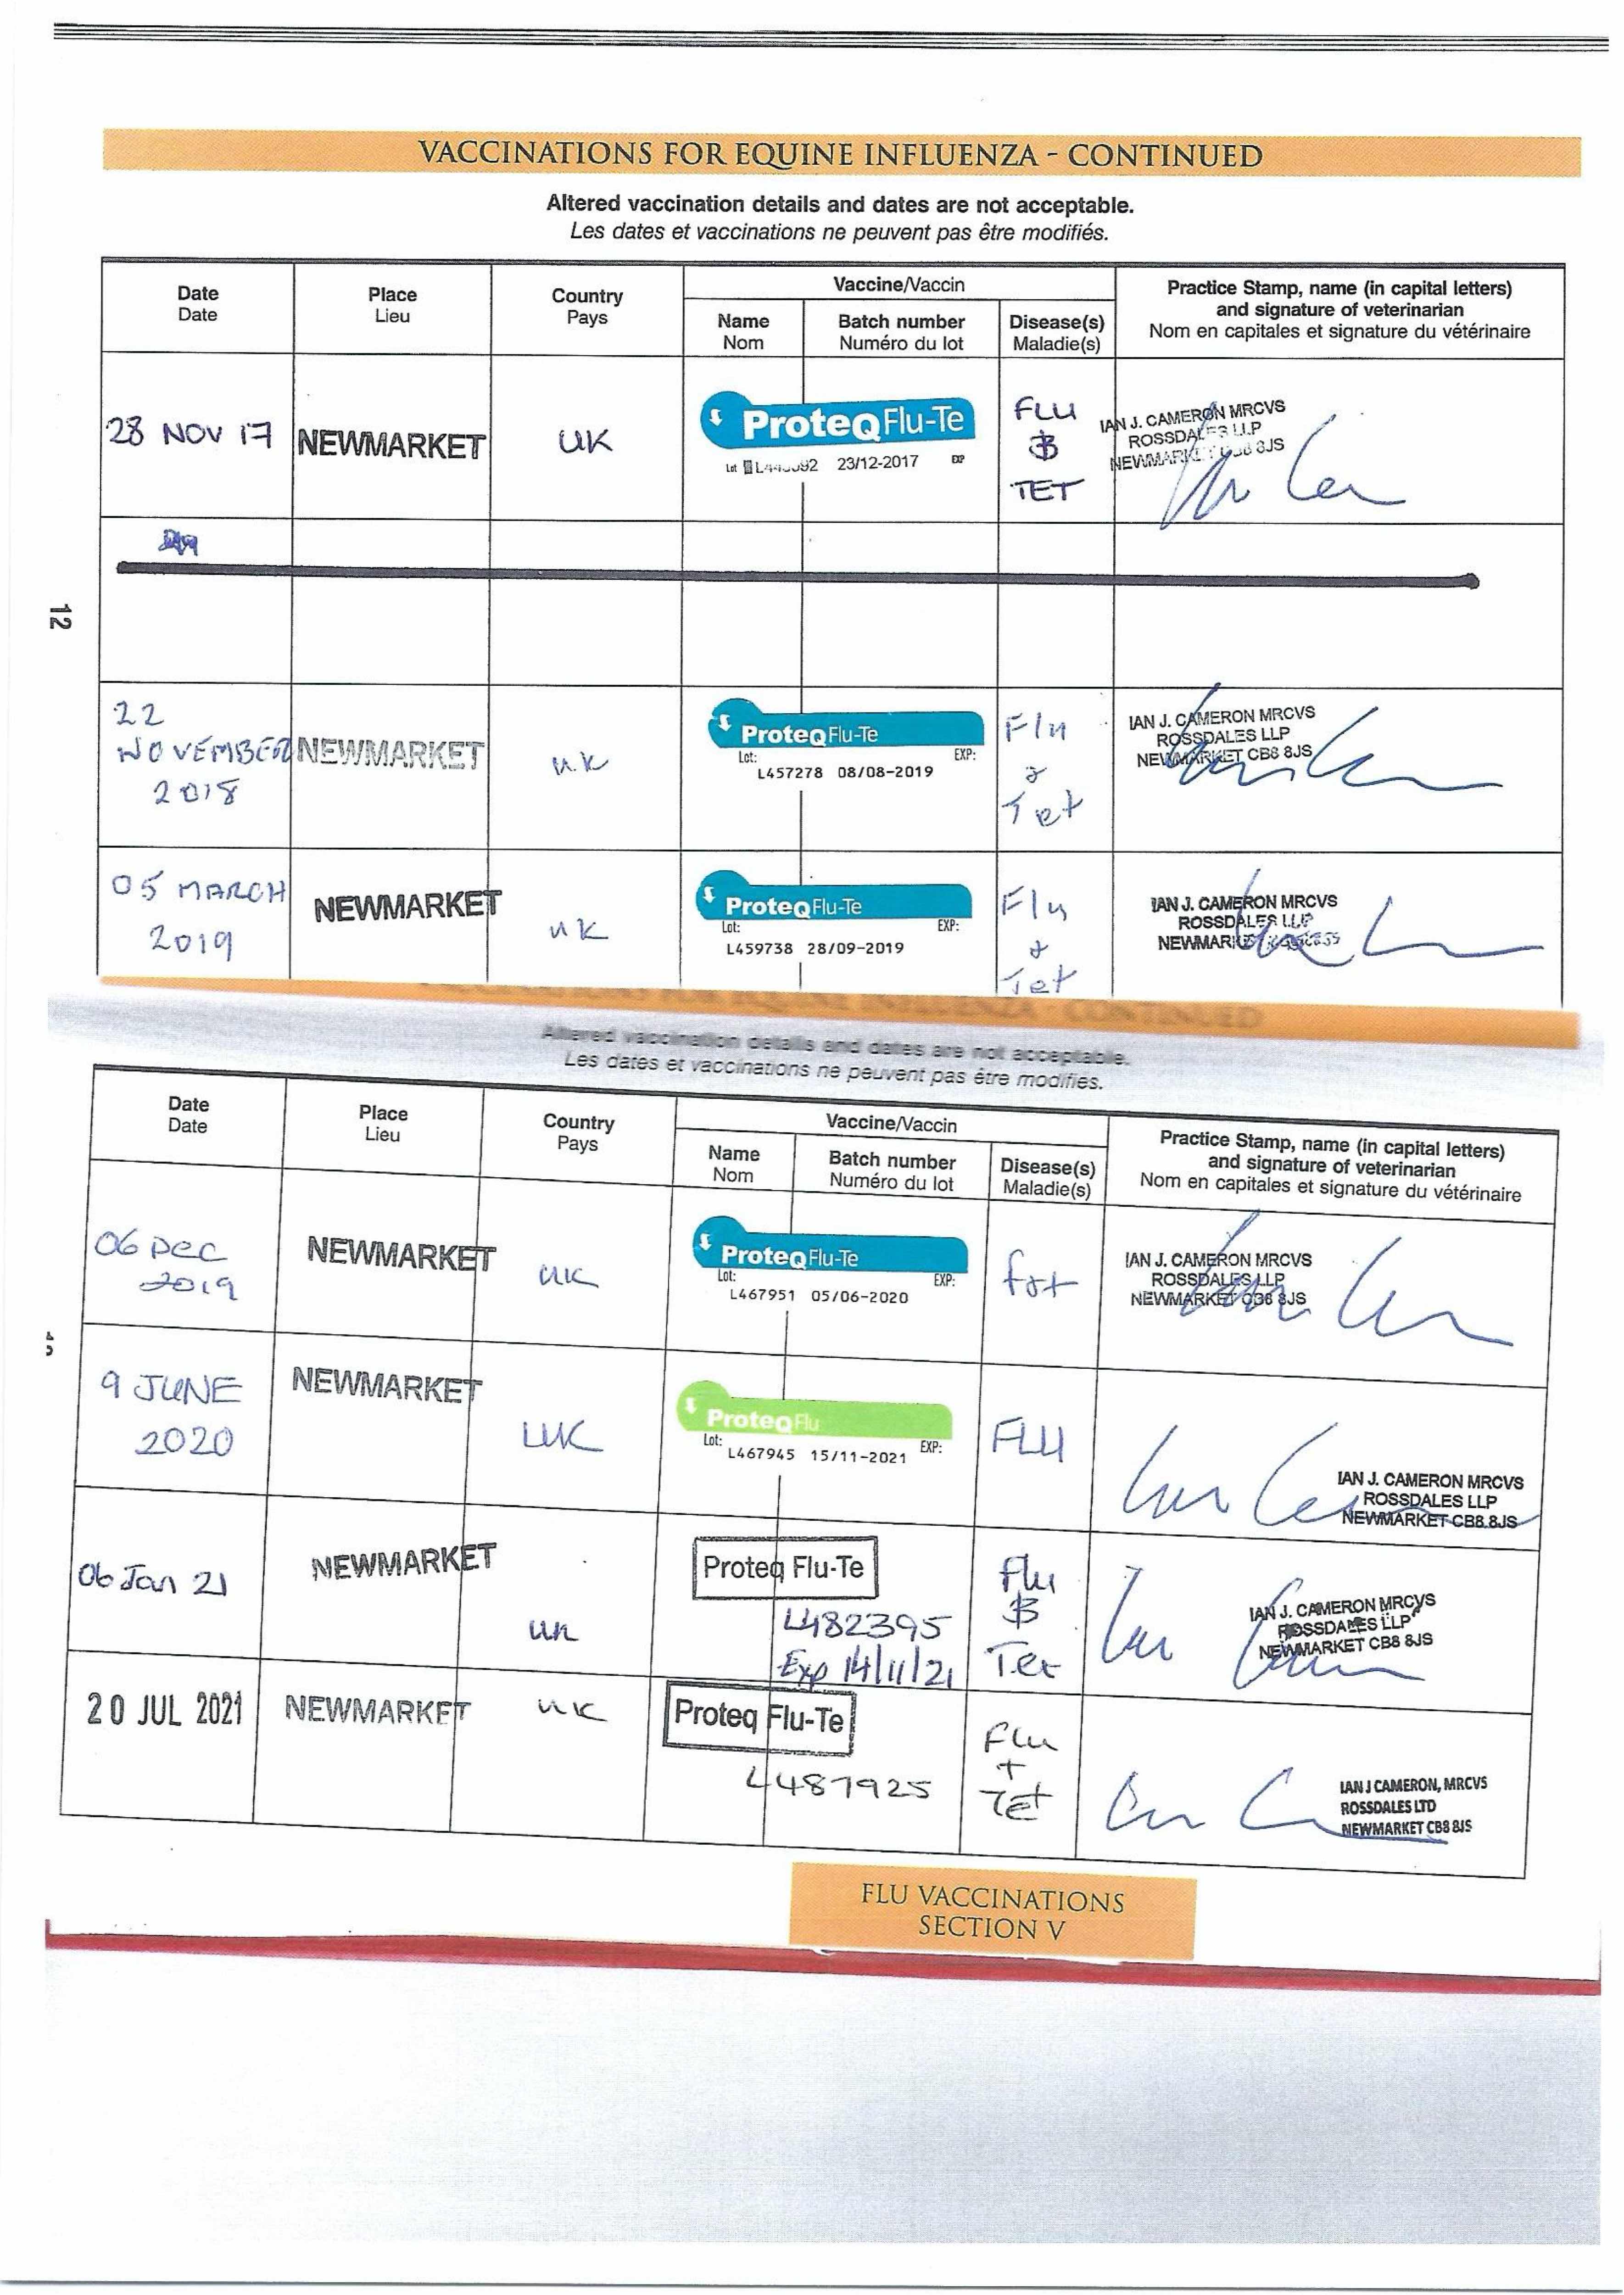 VACCINATIONS FOR EQUINE INFLUENZA - CONTINUED
Altered vaccination details and dates are not acceptable.
Les dates et vaccinations ne peuvent pas être modifiés.
Date
Date
Place
Lieu
Country
Pays
Vaccine/Vaccin
Name
Nom
Batch number
Numéro du lot
Disease(s)
Maladie(s)
Practice Stamp, name (in capital letters)
and signature of veterinarian
Nom en capitales et signature du vétérinaire
28 NOV 17
NEWMARKET
UK
ProteqFlu-Te
Lot 23/12-2017 EXP
FLU
&
TET
IAN J. CAMERON MRCVS
ROSSDALES LLP
NEWMARKET CB8 8JS
12
22
NOVEMBER
2018
NEWMARKET
UK
ProteqFlu-Te
Lot: EXP:
L457278 08/08-2019
Flu
&
Tet
IAN J. CAMERON MRCVS
ROSSDALES LLP
NEWMARKET CB8 8JS
05 MARCH
2019
NEWMARKET
UK
ProteqFlu-Te
Lot: EXP:
L459738 28/09-2019
Flu
&
Tet
IAN J. CAMERON MRCVS
ROSSDALES LLP
NEWMARKET
VACCINATIONS FOR EQUINE INFLUENZA - CONTINUED
Altered vaccination details and dates are not acceptable.
Les dates et vaccinations ne peuvent pas être modifiés.
Date
Date
Place
Lieu
Country
Pays
Vaccine/Vaccin
Name
Nom
Batch number
Numéro du lot
Disease(s)
Maladie(s)
Practice Stamp, name (in capital letters)
and signature of veterinarian
Nom en capitales et signature du vétérinaire
06 Dec
2019
NEWMARKET
UK
ProteqFlu-Te
Lot: EXP:
L467951 05/06-2020
f+t
IAN J. CAMERON MRCVS
ROSSDALES LLP
NEWMARKET CB8 8JS
9 JUNE
2020
NEWMARKET
UK
ProteqFlu
Lot: EXP:
L467945 15/11-2021
FLU
IAN J. CAMERON MRCVS
ROSSDALES LLP
NEWMARKET CB8 8JS
06 Jan 21
NEWMARKET
UK
Proteq Flu-Te
L482395
Exp 14/11/21
Flu
&
Tet
IAN J. CAMERON MRCVS
ROSSDALES LLP
NEWMARKET CB8 8JS
20 JUL 2021
NEWMARKET
UK
Proteq Flu-Te
L487925
Flu
+
Tet
IAN J CAMERON, MRCVS
ROSSDALES LTD
NEWMARKET CB8 8JS
FLU VACCINATIONS
SECTION V